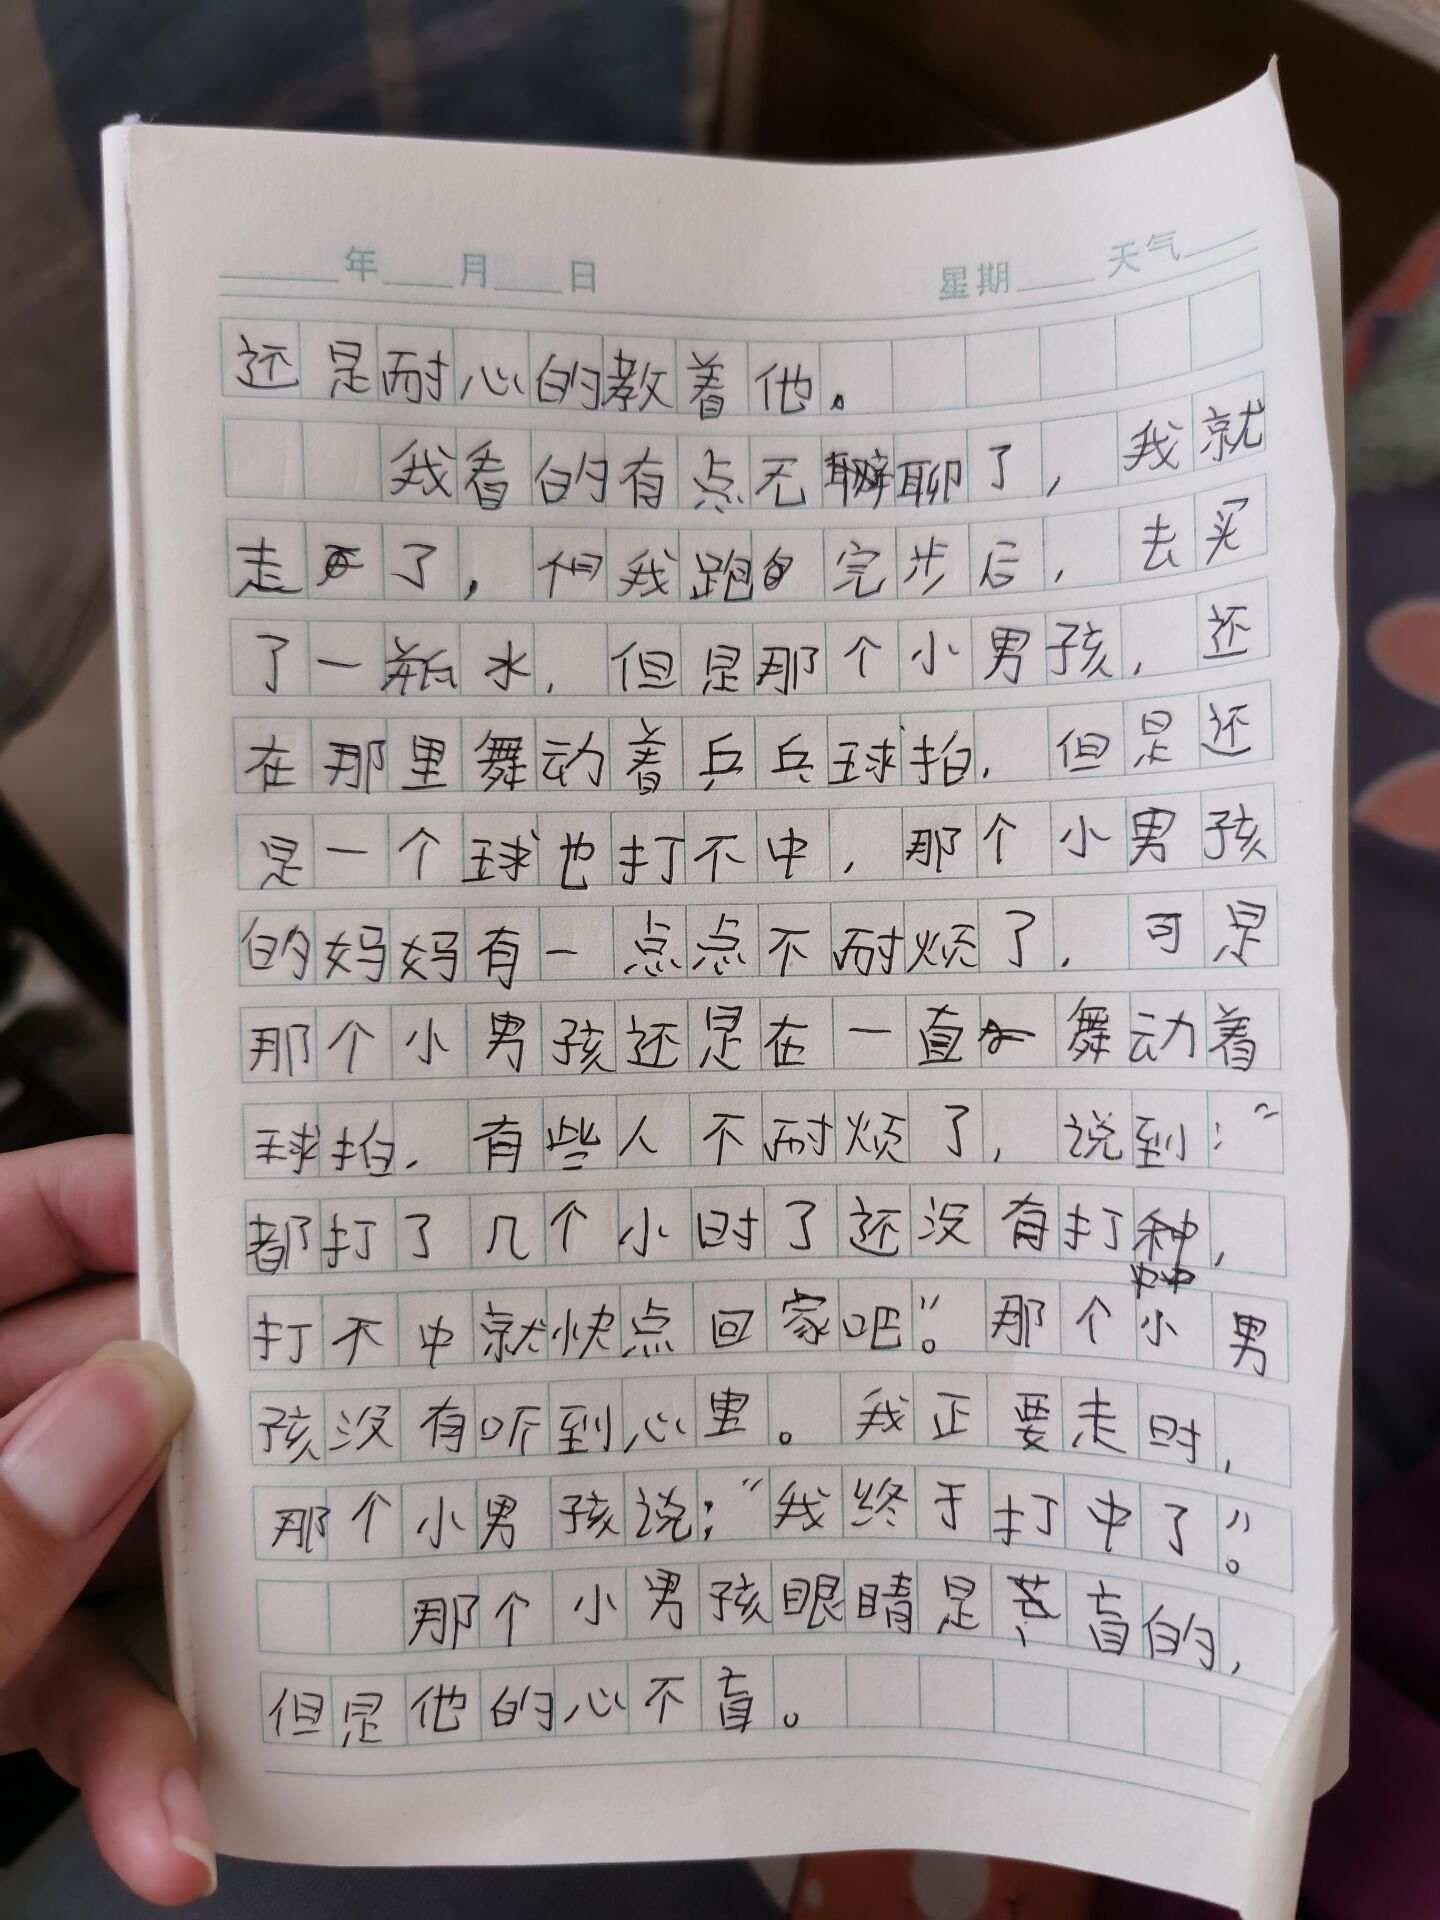 年 月 日 星期 天气
还是耐心的教着他。
我看的有点无聊了，我就
走了，但我跑完步后，去买
了一瓶水，但是那个小男孩，还
在那里舞动着乒乓球拍，但是还
是一个球也打不中，那个小男孩
的妈妈有一点点不耐烦了，可是
那个小男孩还是在一直舞动着
球拍，有些人不耐烦了，说到：“
都打了几个小时了还没有打中，
打不中就快点回家吧”。那个小男
孩没有听到心里。我正要走时，
那个小男孩说：“我终于打中了”。
那个小男孩眼睛是盲的，
但是他的心不盲。